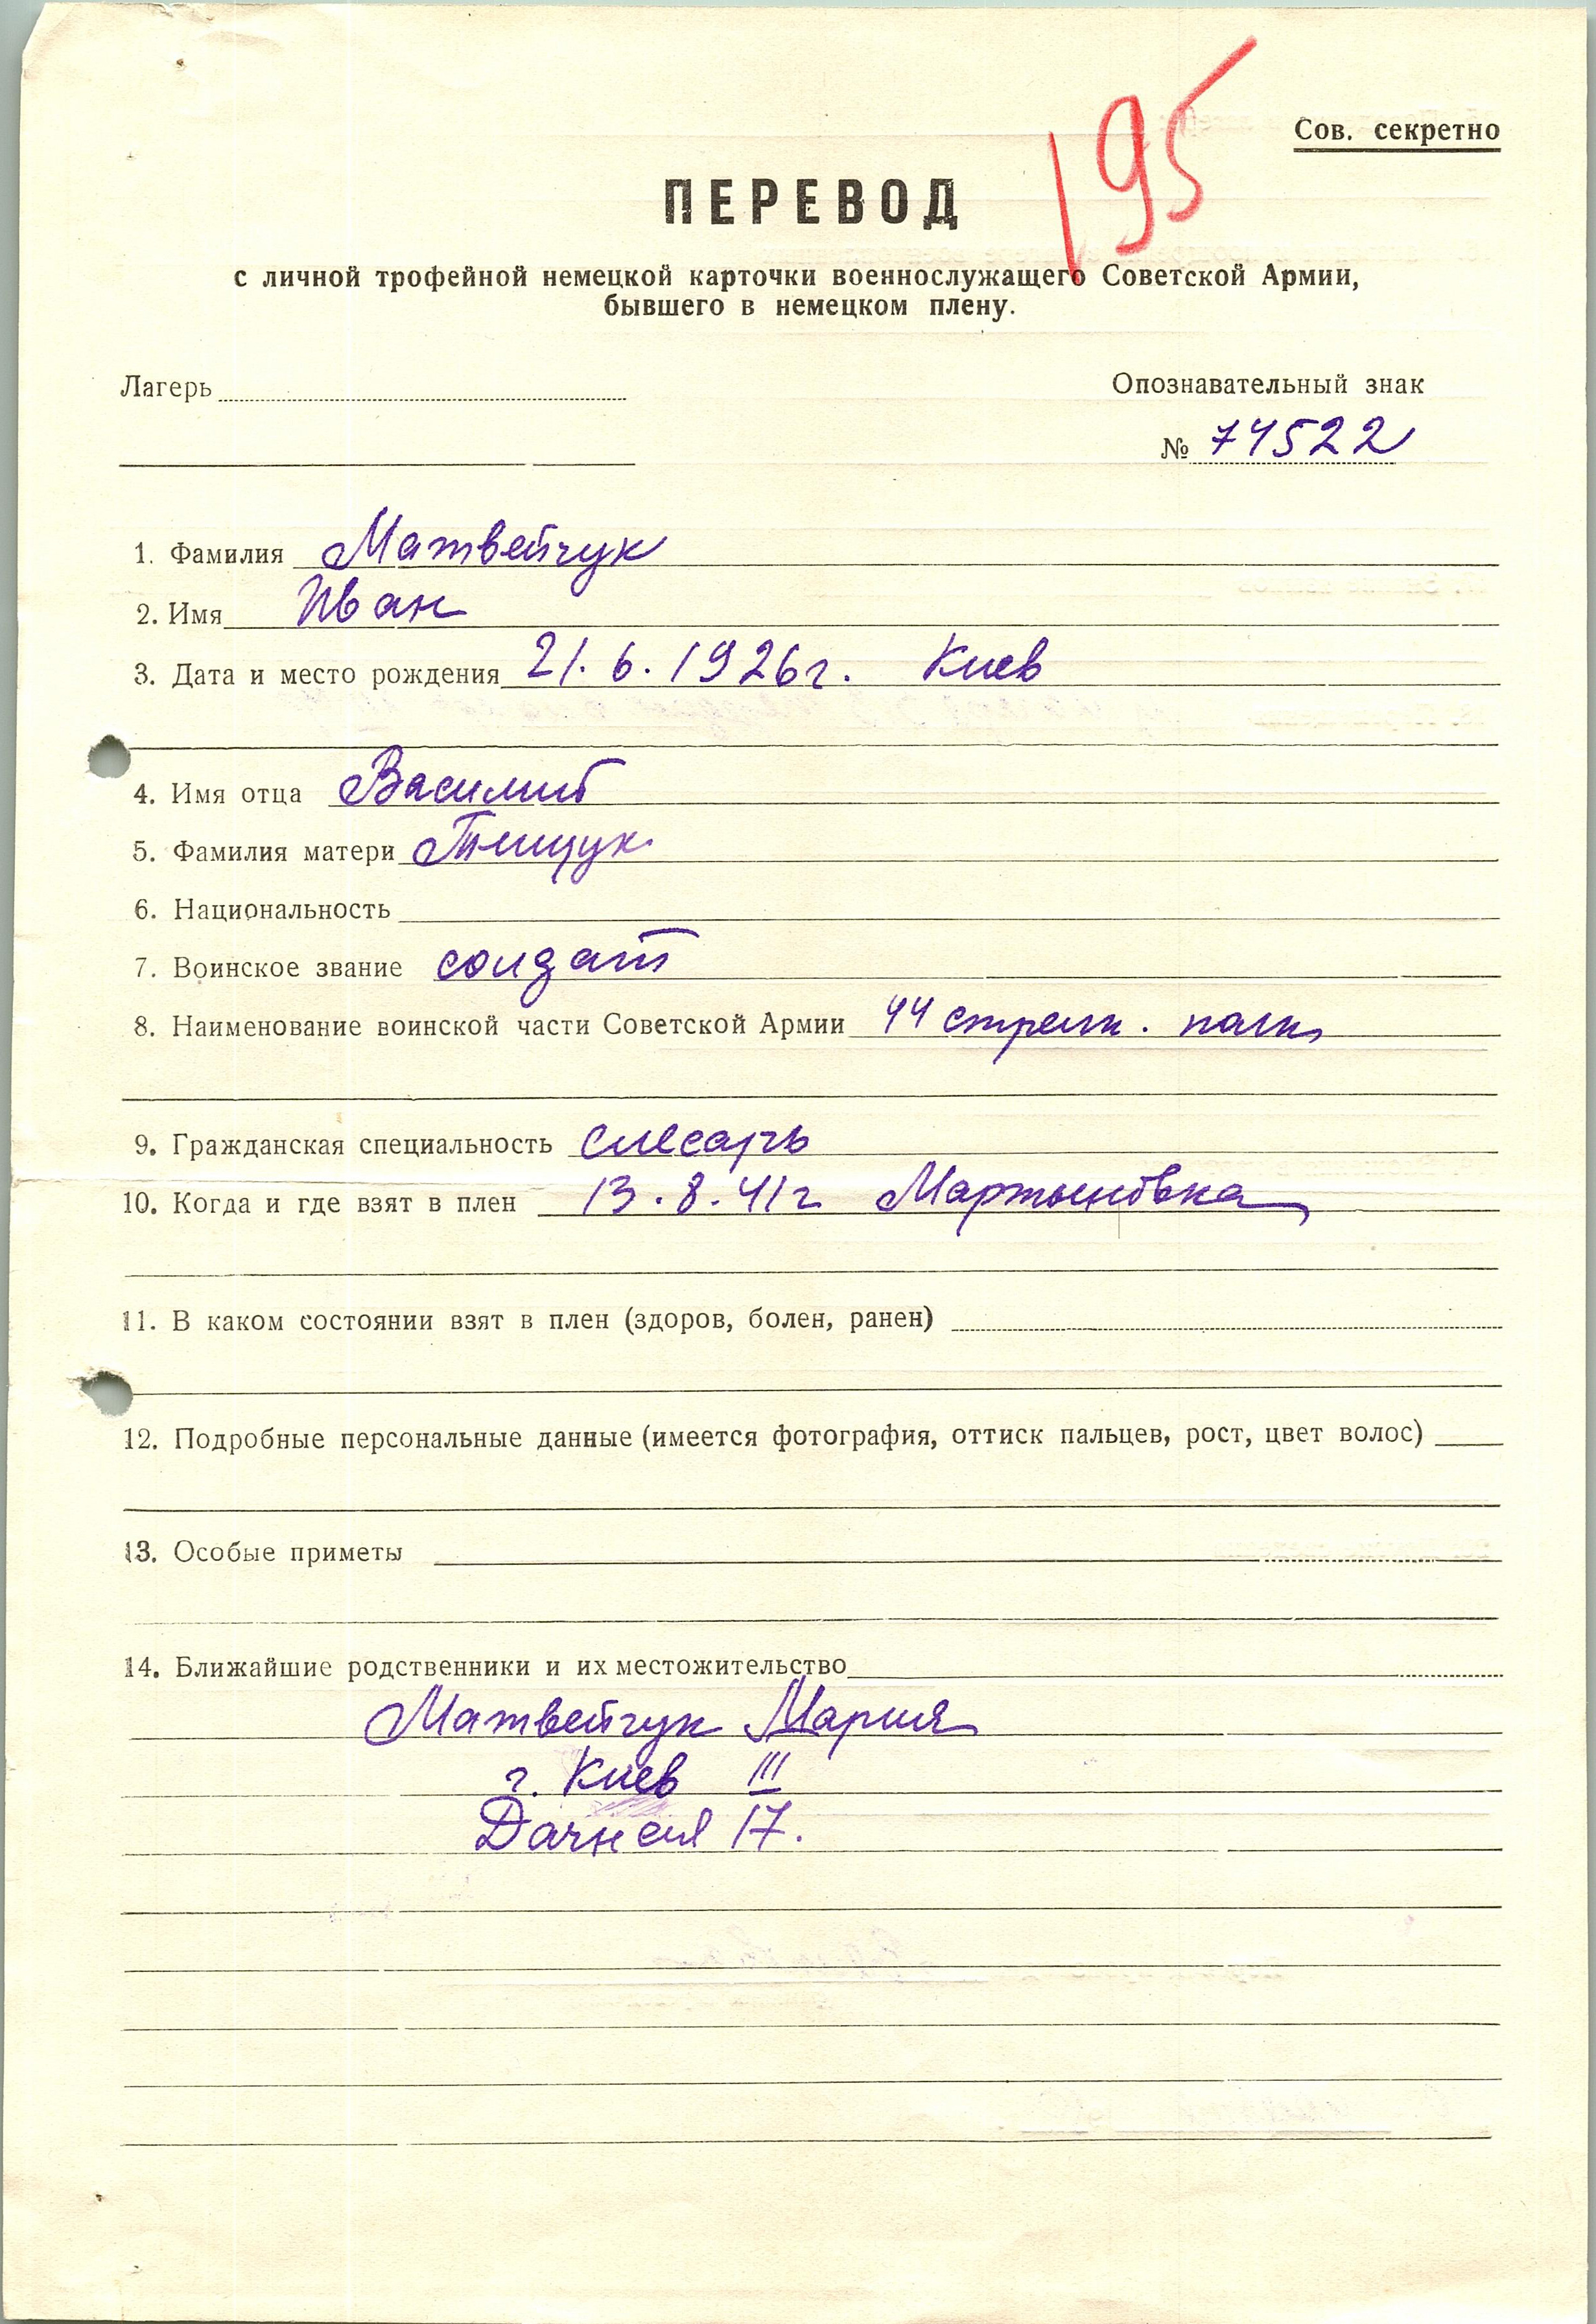 195
Сов. секретно
ПЕРЕВОД
с личной трофейной немецкой карточки военнослужащего Советской Армии,
бывшего в немецком плену.
Лагерь
Опознавательный знак
№ 74522
1. Фамилия Матвейчук
2. Имя Иван
3. Дата и место рождения 21.6.1926г. Киев
4. Имя отца Василий
5. Фамилия матери Тищук
6. Национальность
7. Воинское звание солдат
8. Наименование воинской части Советской Армии 44 стрелк. полк
9. Гражданская специальность слесарь
10. Когда и где взят в плен 13.8.41г Мартыновка
11. В каком состоянии взят в плен (здоров, болен, ранен)
12. Подробные персональные данные (имеется фотография, оттиск пальцев, рост, цвет волос)
13. Особые приметы
14. Ближайшие родственники и их местожительство
Матвейчук Мария
г. Киев III
17.